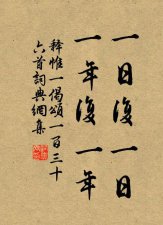 一日復一日
一年復一年
釋惟一偈頌一百三十
六首詞典網集